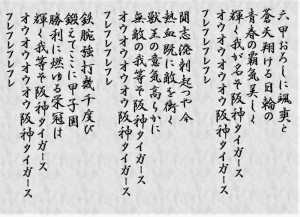 六甲おろしに颯爽と
蒼天翔ける日輪の
青春の覇気美しく
輝く我が名ぞ阪神タイガース
オウオウオウオウ阪神タイガース
フレフレフレフレ
闘志溌剌起つや今
熱血既に敵を衝く
獣王の意気高らかに
無敵の我等ぞ阪神タイガース
オウオウオウオウ阪神タイガース
フレフレフレフレ
鉄腕強打幾千度び
鍛えてここに甲子園
勝利に燃ゆる栄冠は
輝く我等ぞ阪神タイガース
オウオウオウオウ阪神タイガース
フレフレフレフレ